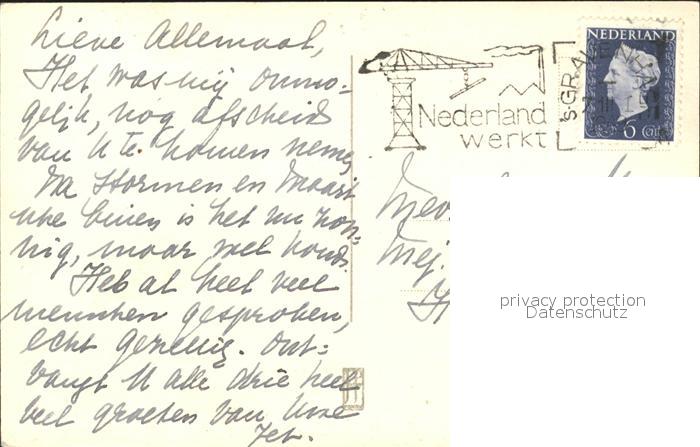 Lieve Allemaal,
Het was mij onmo-
gelijk, nog afscheid
van U te komen neme,
Na stormen en
buien is het nu zon-
nig, maar wel koud.
Heb al heel veel
menschen gesproken,
echt gezellig. Ont-
vangt U alle drie heel
veel groeten van Uwe
Jet.
NEDERLAND
6 ct
Nederland
werkt
'S-GRAVENHAGE
Mej.
privacy protection
Datenschutz